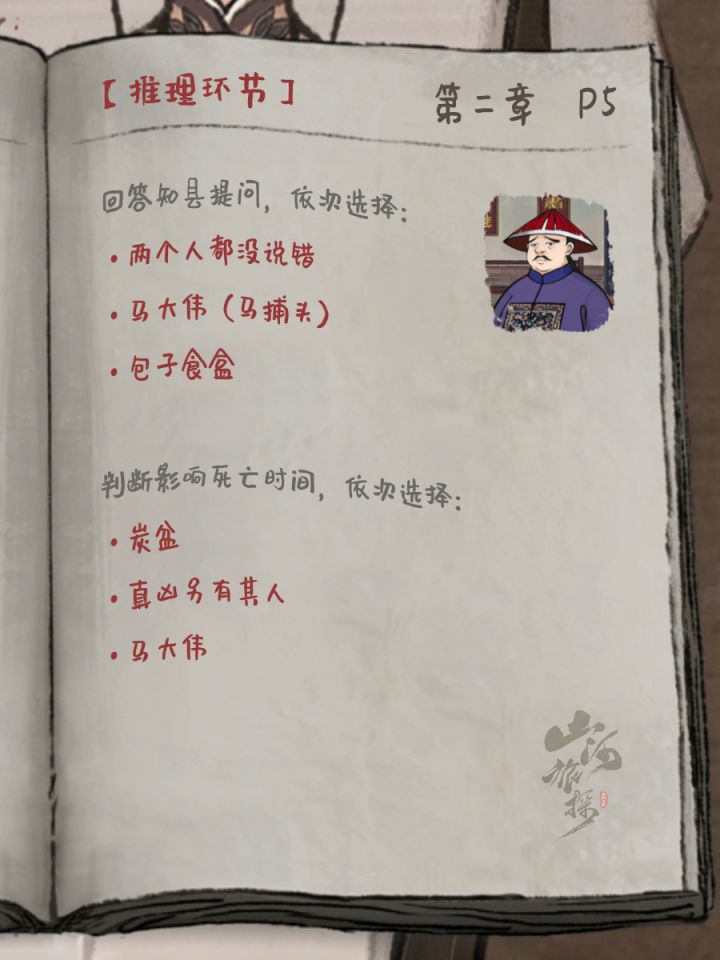 【推理环节】
第二章 P5
回答知县提问，依次选择：
• 两个人都没说错
• 马大伟（马捕头）
• 包子食盒
判断影响死亡时间，依次选择：
• 炭盆
• 真凶另有其人
• 马大伟
山河
旅探